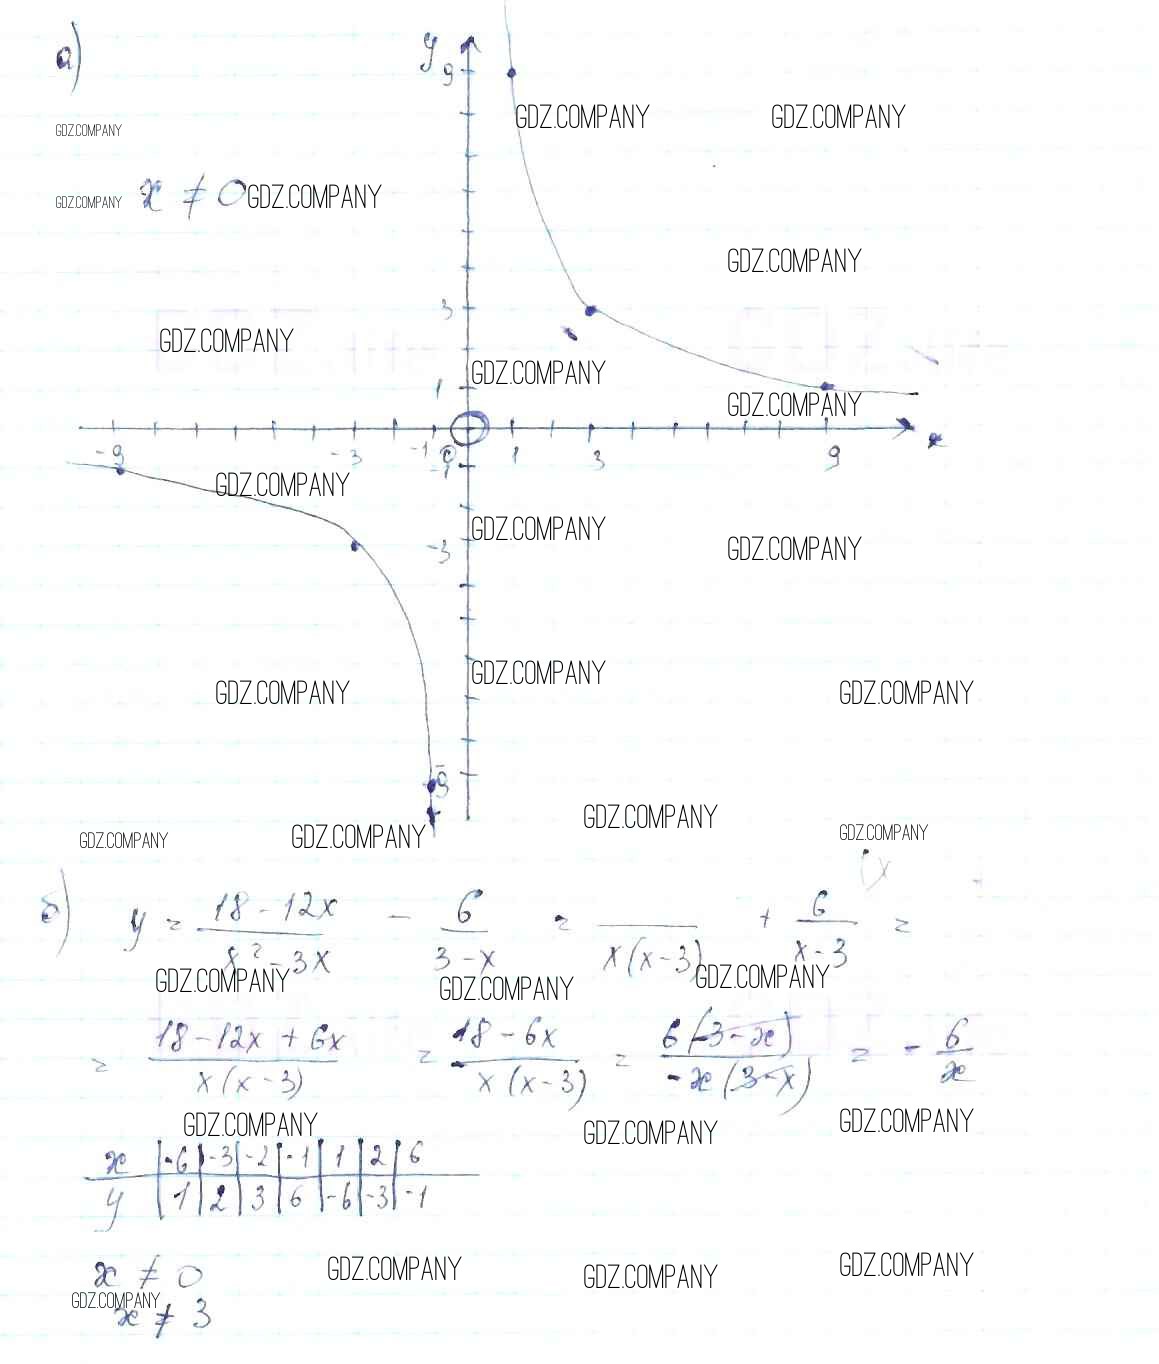 а)
y
9
GDZ.COMPANY GDZ.COMPANY
GDZ.COMPANY
GDZ.COMPANY x ≠ 0 GDZ.COMPANY
GDZ.COMPANY
3
GDZ.COMPANY
GDZ.COMPANY
1
GDZ.COMPANY
-9 -3 -1 0 1 3 9 x
-1
GDZ.COMPANY
GDZ.COMPANY
-3
GDZ.COMPANY
GDZ.COMPANY
GDZ.COMPANY GDZ.COMPANY
-9
GDZ.COMPANY
GDZ.COMPANY GDZ.COMPANY GDZ.COMPANY
(x
б) y = (18 - 12x)/(x² - 3x) - 6/(3 - x) = /(x(x-3)) + 6/(x-3) =
GDZ.COMPANY GDZ.COMPANY GDZ.COMPANY
= (18 - 12x + 6x)/(x(x-3)) = (18 - 6x)/(x(x-3)) = (6(3-x))/(-x(3-x)) = -6/x
GDZ.COMPANY GDZ.COMPANY GDZ.COMPANY
x -6 -3 -2 -1 1 2 6
y 1 2 3 6 -6 -3 -1
x ≠ 0 GDZ.COMPANY GDZ.COMPANY GDZ.COMPANY
GDZ.COMPANY
x ≠ 3